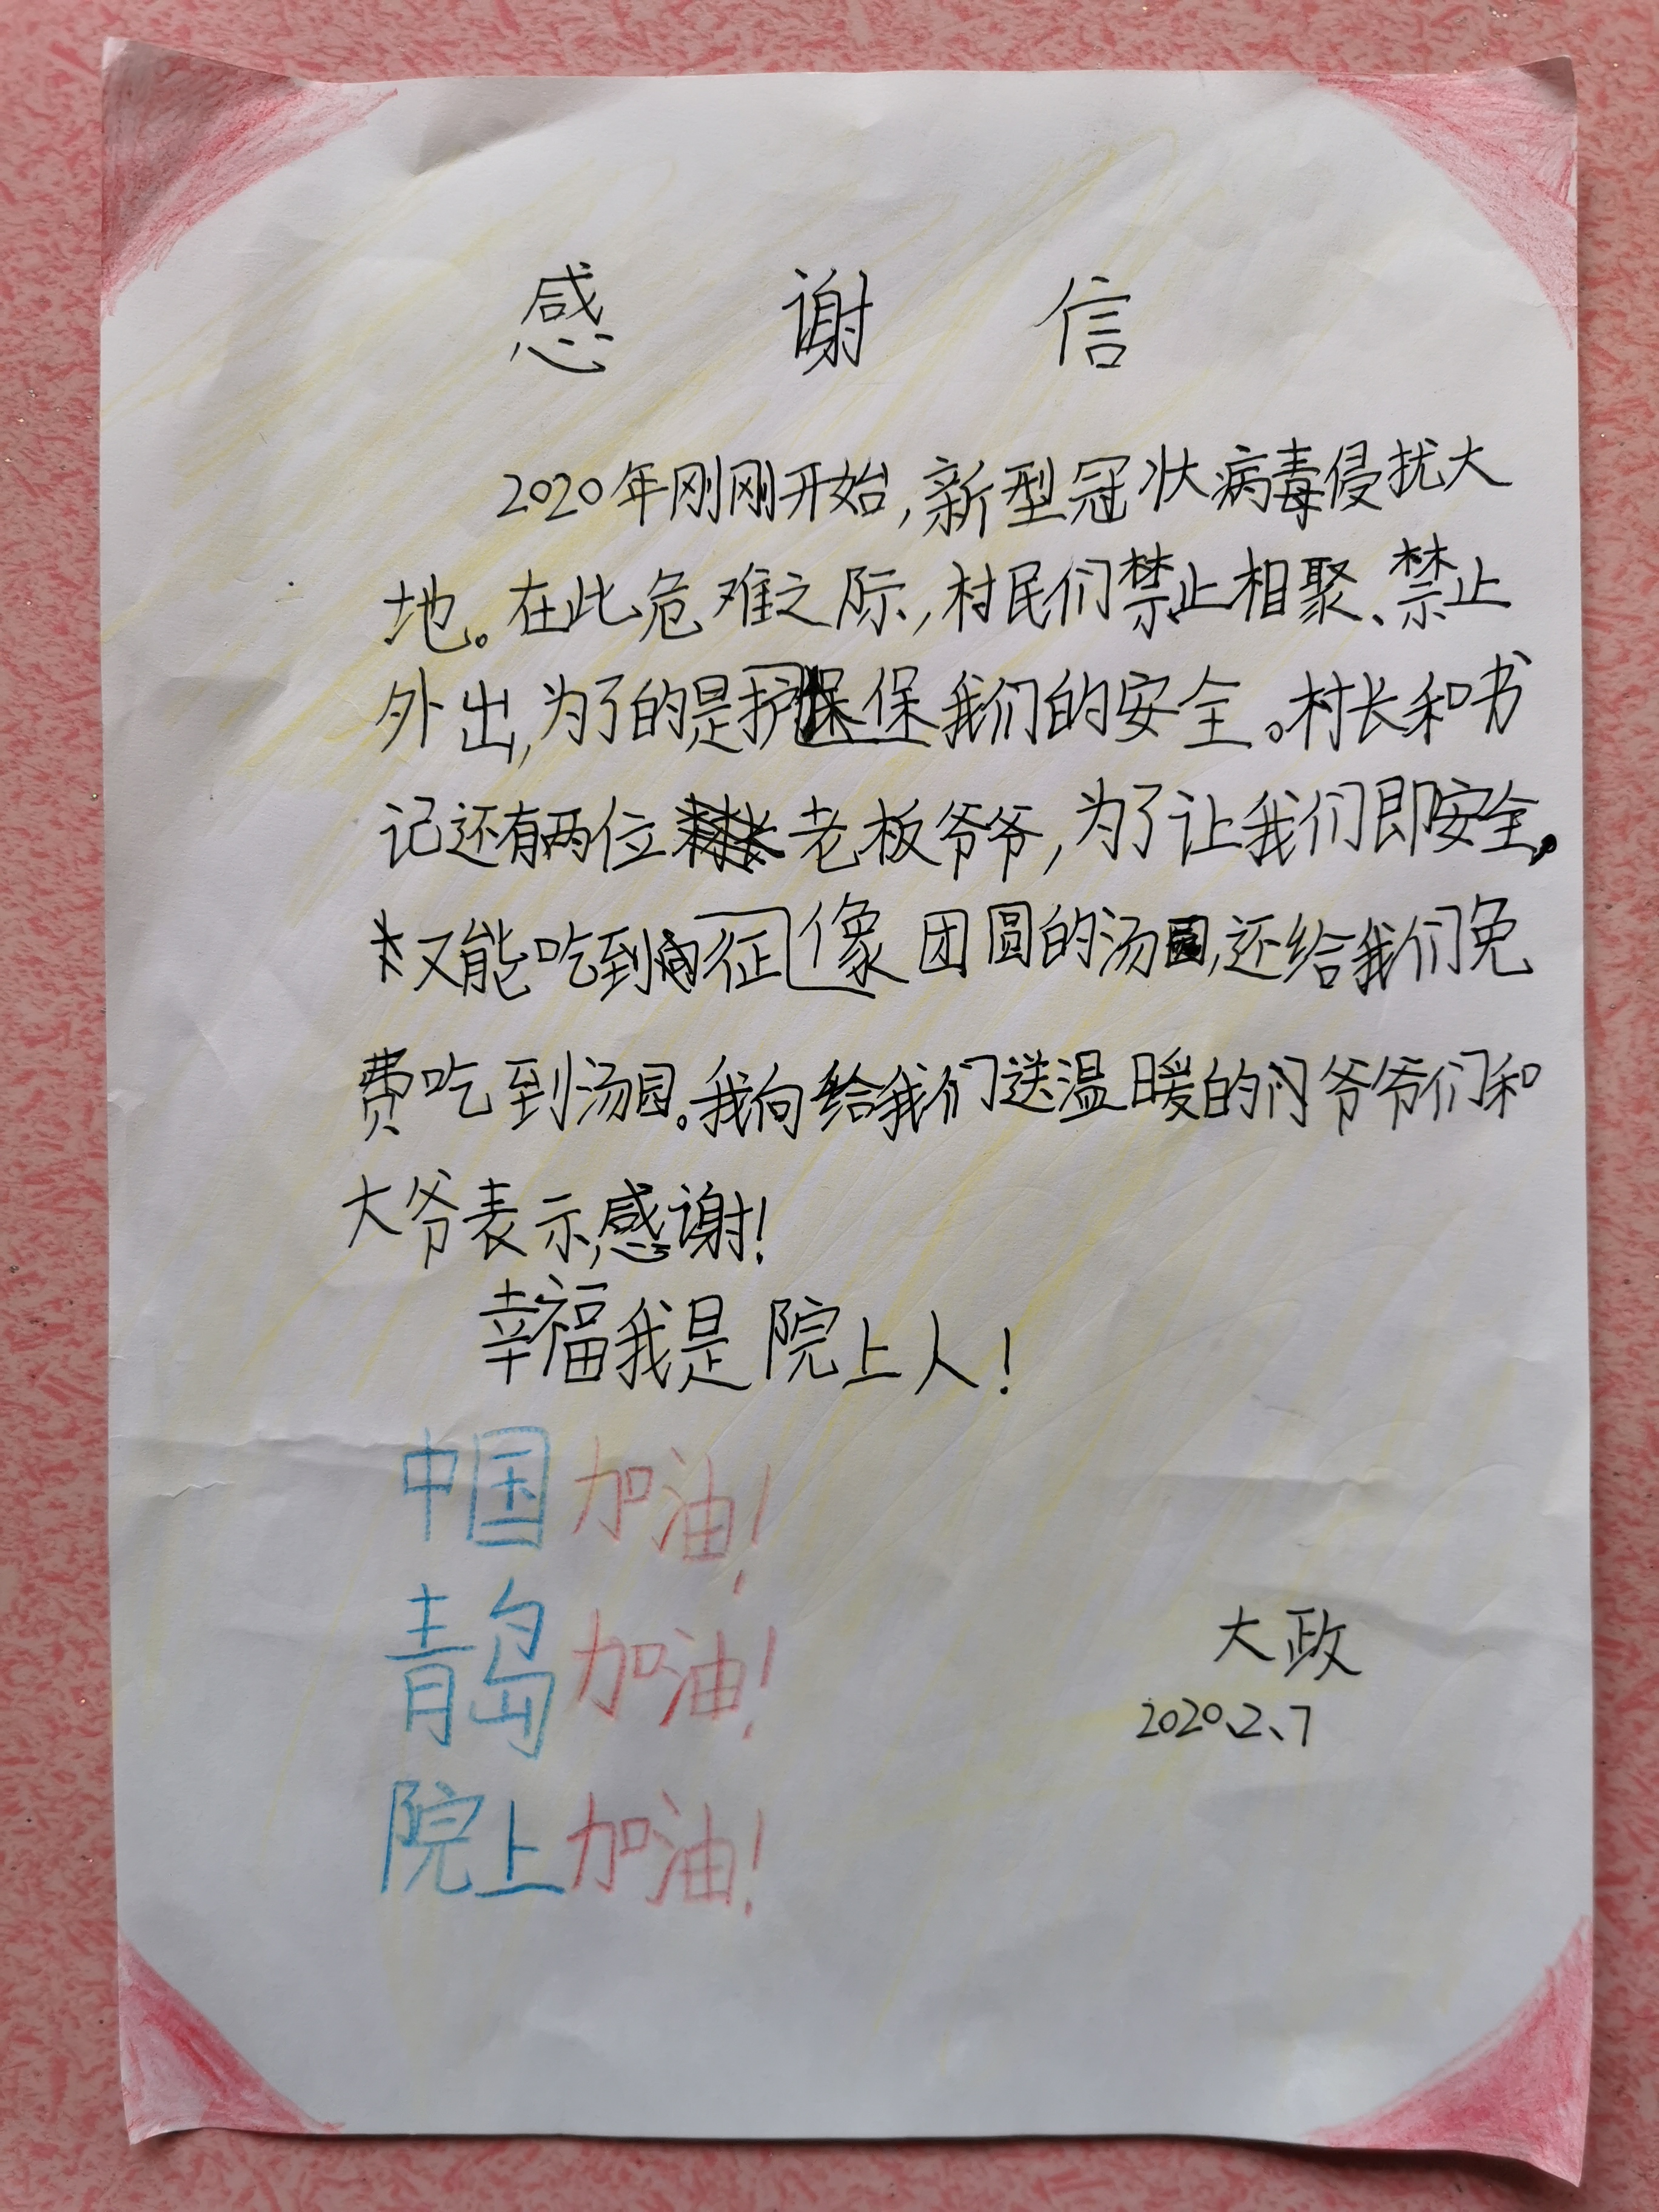 感谢信
2020年刚刚开始,新型冠状病毒侵扰大
地。在此危难之际,村民们禁止相聚、禁止
外出,为了的是护保我们的安全。村长和书
记还有两位老板爷爷,为了让我们即安全,
又能吃到征像团圆的汤圆,还给我们免
费吃到汤园。我向给我们送温暖的爷爷们和
大爷表示感谢!
幸福我是院上人!
中国加油!
青岛加油!
大政
2020、2、7
院上加油!